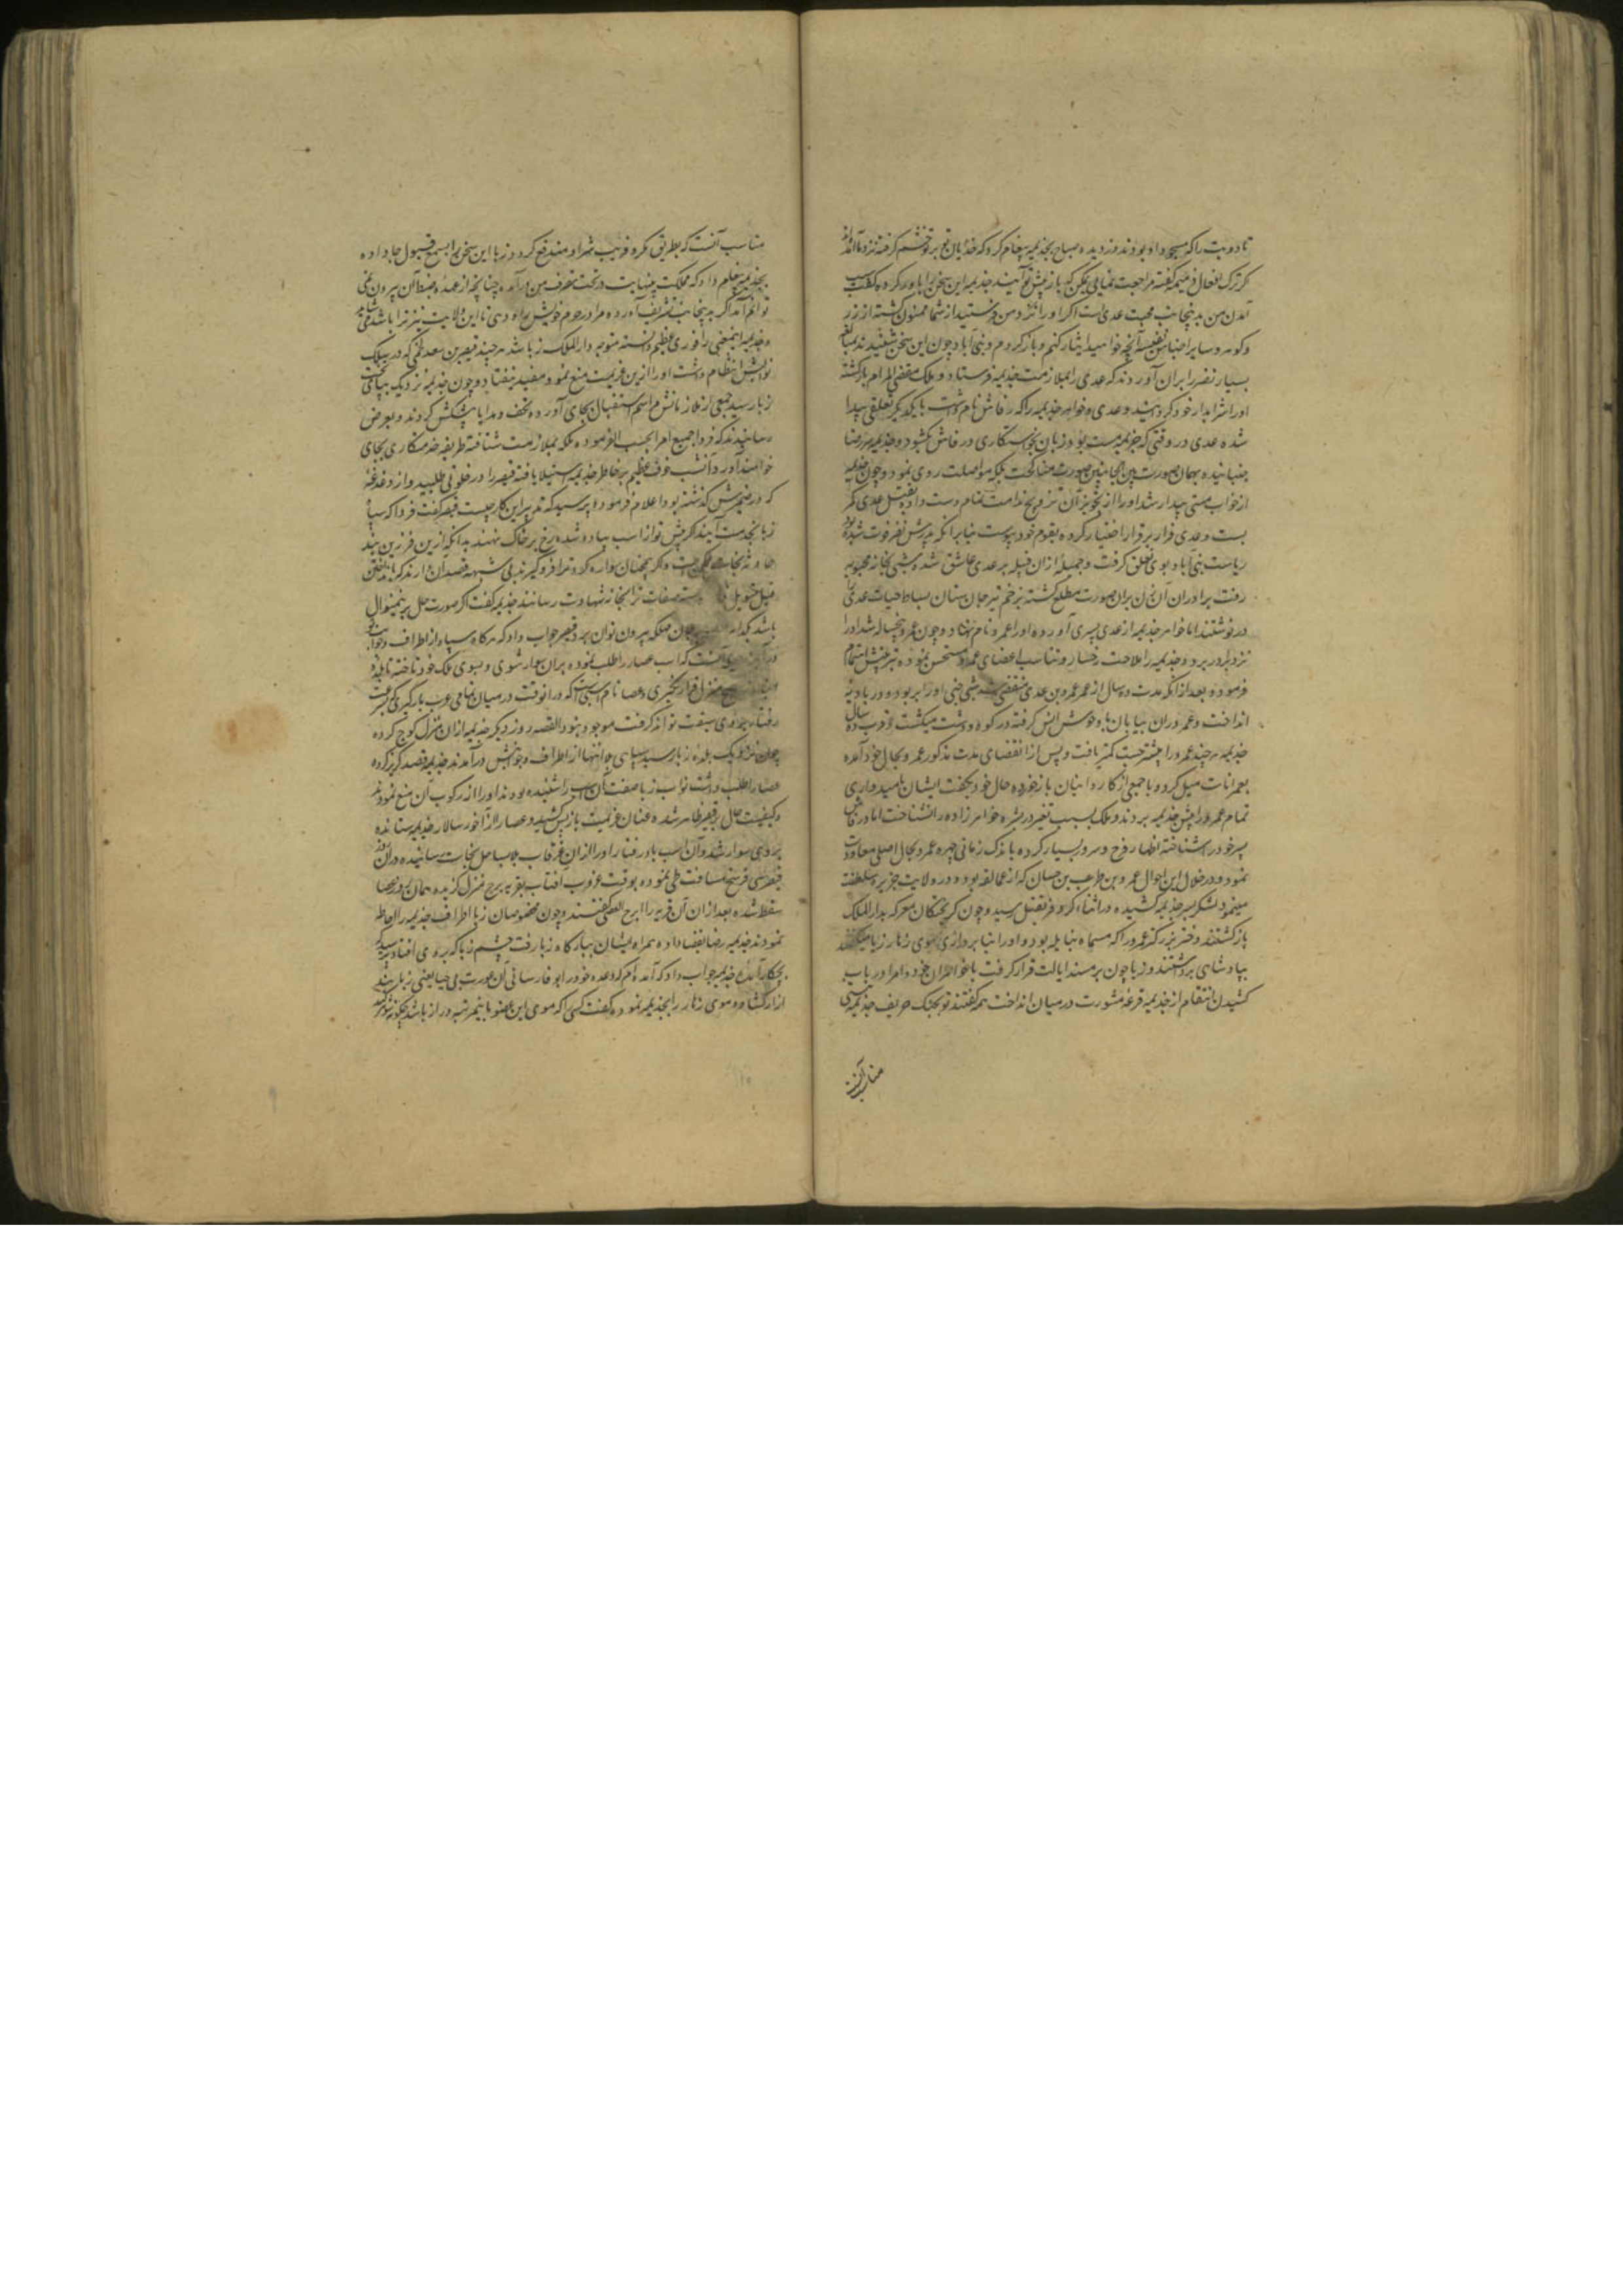 تا دو بت را که مسجود او بودند دزدیده صباح بجذیمه پیغام کرد که خدایان تو بر تو خشم گرفته نزد ما آمده‌اند
که ترک افعال ذمیمه گفته مراجعت نمایی ممکن که باز پیش تو آیند جذیمه این سخن را باور کرده گفت سبب
آمدن من بدینجانب محبت عدی است اگر او را نزد من فرستید از شما ممنون گشته از زر
و گوهر و سایر اجناس نفیسه آنچه خواهید ایثار کنم و باز گردم و بنی ایاد چون این سخن شنیدند
بسیار نصر را بران آوردند که عدی را بملازمت جذیمه فرستاد و ملک مقضی المرام بازگشته
او را شرابدار خود گردانید و عدی و خواهر جذیمه را که رقاش نام داشت با یکدیگر تعلقی پیدا
شده عدی در وقتی که جذیمه مست بود زبان بخواستگاری رقاش بگشود و جذیمه سر رضا
جنبانیده همان صورت بین الجانبین صورت مناکحت بلکه مواصلت روی نمود و چون جذیمه
از خواب مستی بیدار شد او را از تجویز آن تزویج ندامت تمام دست داده بقتل عدی کمر
بست و عدی فرار بر قرار اختیار کرده بقوم خود پیوست بنابر آنکه پدرش نصر فوت شده بود
ریاست بنی ایاد بوی تعلق گرفت و جمیله از ان قبیله بر عدی عاشق شده شبی بخانه محبوبه
رفت برادران آن زن بران صورت مطلع گشته بزخم تیر جان ستان بساط حیات عدی را
در نوشتند اما خواهر جذیمه از عدی پسری آورده او را عمرو نام نهاد و چون عمرو پنجساله شد او را
نزد برادر برد و جذیمه را ملاحت رخسار و تناسب اعضای عمرو مستحسن نموده بتربیتش اهتمام
فرمود و بعد از آنکه مدت ده سال از عمر عمرو بن عدی منقضی شد شبی جنی او را بربود و در بادیه
انداخت و عمرو دران بیابان با وحوش انس گرفته در کوه و دشت میگشت و قرب ده سال
جذیمه هر چند عمرو را بیشتر جست کمتر یافت و پس از انقضای مدت مذکور عمرو بحال خود آمده
بعمرانات میل کرد و با جمعی از کاروانیان باز خورده حال خود بگفت ایشان بامیدواری
تمام عمرو را پیش جذیمه بردند و ملک بسبب تغیر در بشره خواهرزاده را نشناخت اما رقاش
پسر خود را شناخته اظهار فرح و سرور بسیار کرده باندک زمانی چهره عمرو بحال اصلی معاودت
نمود و در خلال این احوال عمرو بن طرب بن حسان که از عمالقه بوده در ولایت جزیره سلطنت
مینمود لشکر بسر جذیمه کشیده در اثناء کر و فر بقتل رسید و چون گریختگان معرکه بدار الملک
بازگشتند دختر بزرگتر عمرو را که مسماه بنایله بود و او را بنا بر درازی موی زهار زبا میگفتند
بپادشاهی برداشتند و زبا چون بر مسند ایالت قرار گرفت با خواهران خود و امرا در باب
کشیدن انتقام از جذیمه قرعه مشورت در میان انداخت همه گفتند تو بجنگ حریف جذیمه نیی
مناسب آنست
مناسب آنست که بطریق مکر و فریب شر او مندفع گردد زبا این سخن را بسمع قبول جا داده
بجذیمه پیغام داد که مملکت پهنایت در تحت تصرف من در آمده چنانچه از عهده ضبط آن بیرون نمی
توانم آمد اگر بدینجانب تشریف آورده مرا در حرم خویش راه دهی تا این ولایت نیز ترا باشد می شاید
و جذیمه اینمعنی را فوزی عظیم دانسته متوجه دار الملک زبا شد هر چند قیصر بن سعد لخمی که در سلک
نوابش انتظام داشت او را ازین عزیمت منع نمود مفید نیفتاد و چون جذیمه نزدیک بپای تخت
زبا رسید جمعی از ملازمانش مراسم استقبال بجای آورده تحف و هدایا پیشکش کردند و بعرض
رسانیدند که فردا جمیع امرا بحسب الفرموده ملکه بملازمت شتافته طریقه خدمتکاری بجای
خواهند آورد و آنشب خوف عظیم بر خاطر جذیمه استیلا یافته قیصر را در خلوتی طلبید و از دغدغه
که در ضمیرش گذشته بود اعلام فرموده پرسید که تدبیر این کار چیست قیصر گفت فردا که سپاه
زبا بخدمت آیند اگر پیش تو از اسب پیاده شده رخ بر خاک نهند بدانکه ازین فرزین بند
حادثه نجات ممکن است و اگر همچنان سواره گرد ترا فرو گیرند بی شبهه قصد آن دارند که
باشد کدام جان مهلکه بیرون توان برد قیصر جواب داد که هرگاه سپاه از اطراف و جوانب تو
در آیند آنست که اسب عصا را طلب نموده بران سوار شوی و بسوی ملک خود تاخته تا
هیچ منزل قرار نگیری و عصا نام اسپیست که در آنوقت در میان تمامی عرب بارگیری که بسرعت
رفتار بر وی سبقت تواند گرفت موجود نبود القصه روز دیگر جذیمه از ان منزل کوچ کرده
چون نزدیک بلده زبا رسید سپاهی بی انتها از اطراف و جوانبش در آمدند جذیمه قصد گریز کرده
عصا را طلب داشت نواب زبا صفت آن اسب را شنیده بودند او را از رکوب آن منع نمودند
و کیفیت حال بر قیصر ظاهر شده عنان عزیمت باز پس کشید و عصا را از آخور سالار جذیمه ستانده
بر وی سوار شد و آن اسب باد رفتار او را از ان غرقاب بلا بساحل نجات رسانیده در آن روز
قیصر سی فرسخ مسافت طی نموده بوقت غروب آفتاب بقریه برج منزل گزیده همان روز عصا
سقط شده بعد از ان آن قریه را برج العصا گفتند و چون مخصوصان زبا اطراف جذیمه را احاطه
نمودند جذیمه رضا بقضا داده همراه ایشان ببارگاه زبا رفت چشم زبا که بر وی افتاد پرسید که
بچکار آمده جذیمه جواب داد که آمده ام که وعده خود را بوفا رسانی آن عورت بی حیا یعنی زبا بند
ازار گشاده موی زهار را بجذیمه نموده گفت کسی را که موی این عضو باینمرتبه دراز باشد چگونه شوهر کند